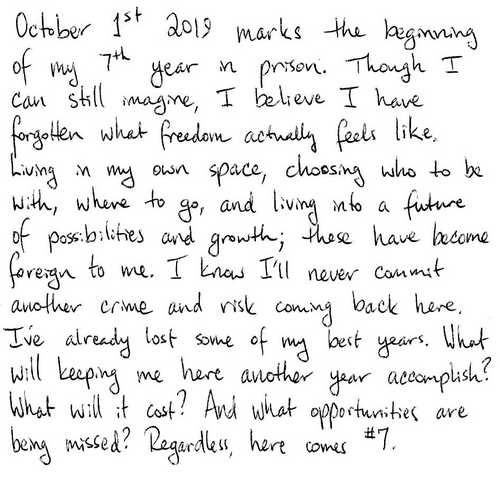 October 1st 2019 marks the beginning
of my 7th year in prison. Though I
can still imagine, I believe I have
forgotten what freedom actually feels like.
Living in my own space, choosing who to be
with, where to go, and living into a future
of possibilities and growth; these have become
foreign to me. I know I'll never commit
another crime and risk coming back here.
I've already lost some of my best years. What
will keeping me here another year accomplish?
What will it cost? And what opportunities are
being missed? Regardless, here comes #7.